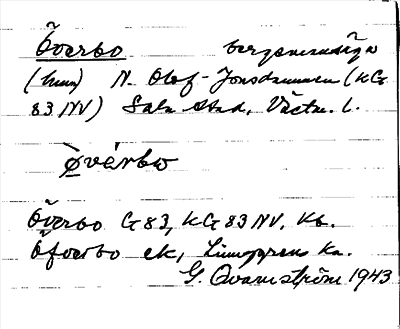 Överbo bergsmansäga
(hus) N. Olof-Jonsdammen (KG
83 NV) Sala stad, Västm. l.
øvérbo
Överbo G 83, KG 83 NV. Kb.
Öfverbo ek,
G. Qvarnström 1943